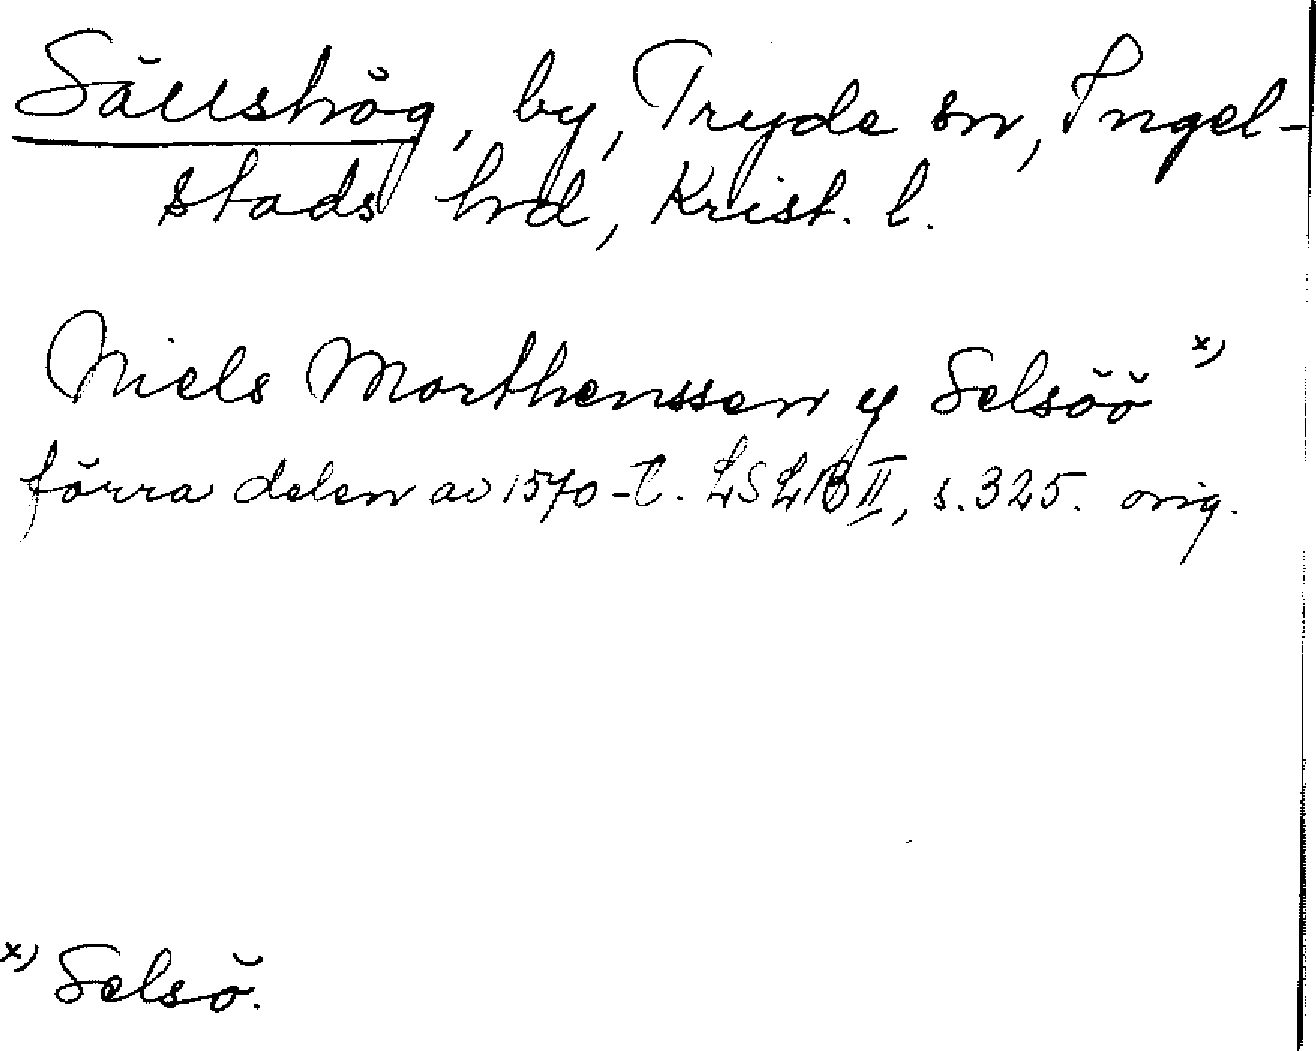 Sällshög, by, Tryde sn, Ingel-
stads hd, Krist. l.
Niels Morthenssen y Selsöö x)
förra delen av 1570-t. LSLB II, s. 325. orig.
x) Selsö.